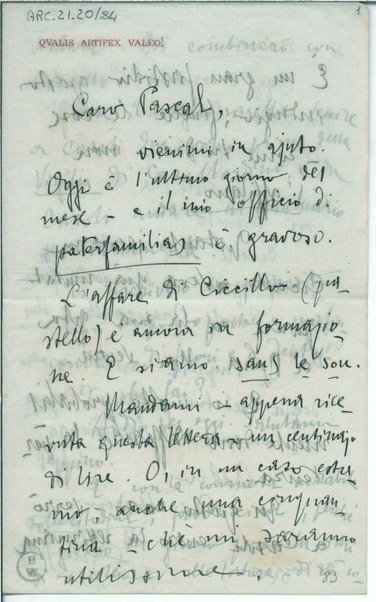 ARC.21.20/84
1
QVALIS ARTIFEX VALEO!
Caro Pascal,
vienimi in ajuto.
Oggi è l'ultimo giorno del
mese – e il mio officio di
paterfamilias è gravoso.
L'affare di Ciccillo (pa-
stello) è ancora in formazio-
ne. E siamo sans le sou.
Mandami – appena rice-
vuta questa lettera – un centinajo
di lire. O, in un caso estre-
mo, anche una cinquan-
tina – che mi saranno
utilissime.
83